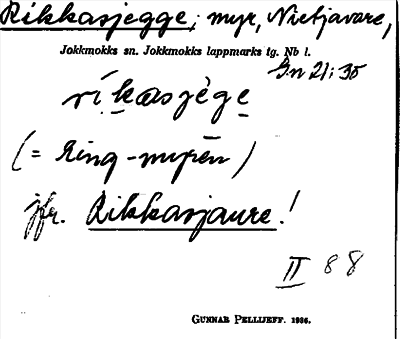 Rikkasjegge, myr, Nietjavare,
Jokkmokks sn. Jokkmokks lappmarks tg. Nb l.
Gn 21:35
ríkasjège
(= Ring-myrēn)
jfr. Rikkasjaure!
II 88
GUNNAR PELLIJEFF. 1936.